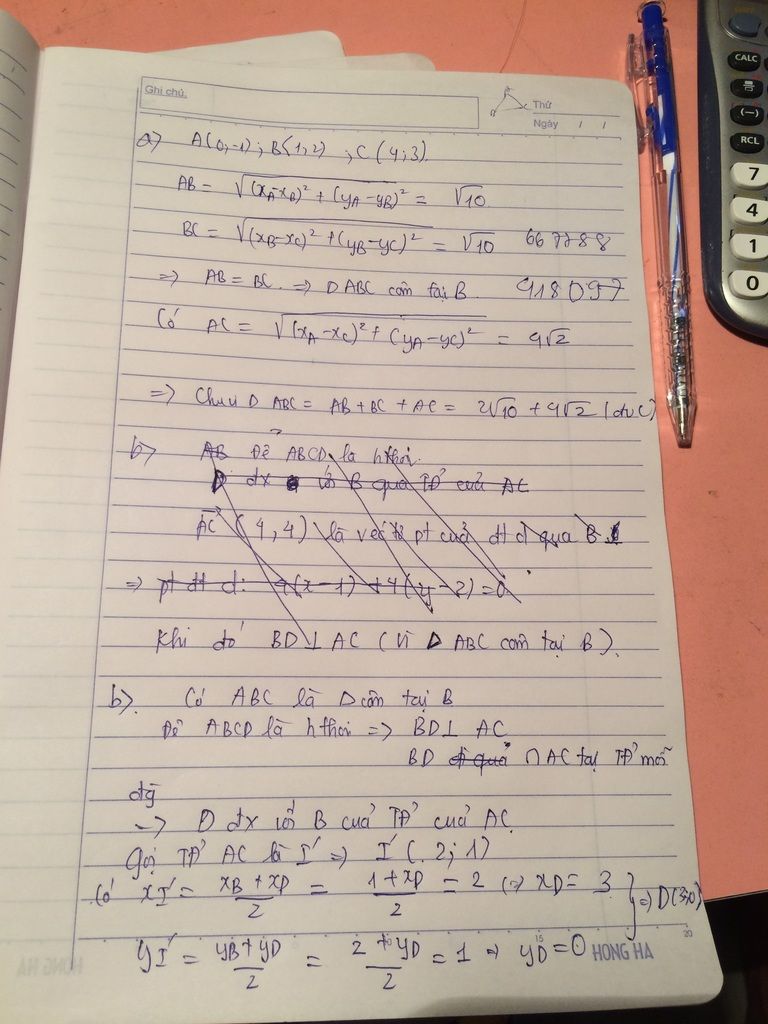 Ghi chú.
Thứ
Ngày / /
a) A(0,-1); B(1;2), C(4;3).
AB = √((xA-xB)² + (yA-yB)²) = √10
BC = √((xB-xC)² + (yB-yC)²) = √10 667788
=> AB = BC. => D ABC cân tại B. 918097
Có AC = √((xA-xC)² + (yA-yC)²) = 4√2
=> Chu vi D ABC = AB + BC + AC = 2√10 + 4√2 (đvC)
b) AB Để ABCD là hthoi.
D đx với B qua TĐ của AC
AC (4,4) là véc tơ pt của đt d qua B
=> pt đt d: 4(x-1) + 4(y-2) = 0
Khi đó BD ⊥ AC (Vì D ABC cân tại B).
b). Có ABC là D cân tại B
Để ABCD là hthoi => BD ⊥ AC
BD đi qua ∩ AC tại TĐ mỗi
đg
-> D đx với B của TĐ của AC.
Gọi TĐ AC là I' => I' (.2;1)
Có xI' = (xB + xD)/2 = (1 + xD)/2 = 2 (=> xD = 3 } => D(3;0)
yI' = (yB + yD)/2 = (2 + yD)/2 = 1 => yD = 0
HONG HA
CALC
(-)
RCL
7
4
1
0